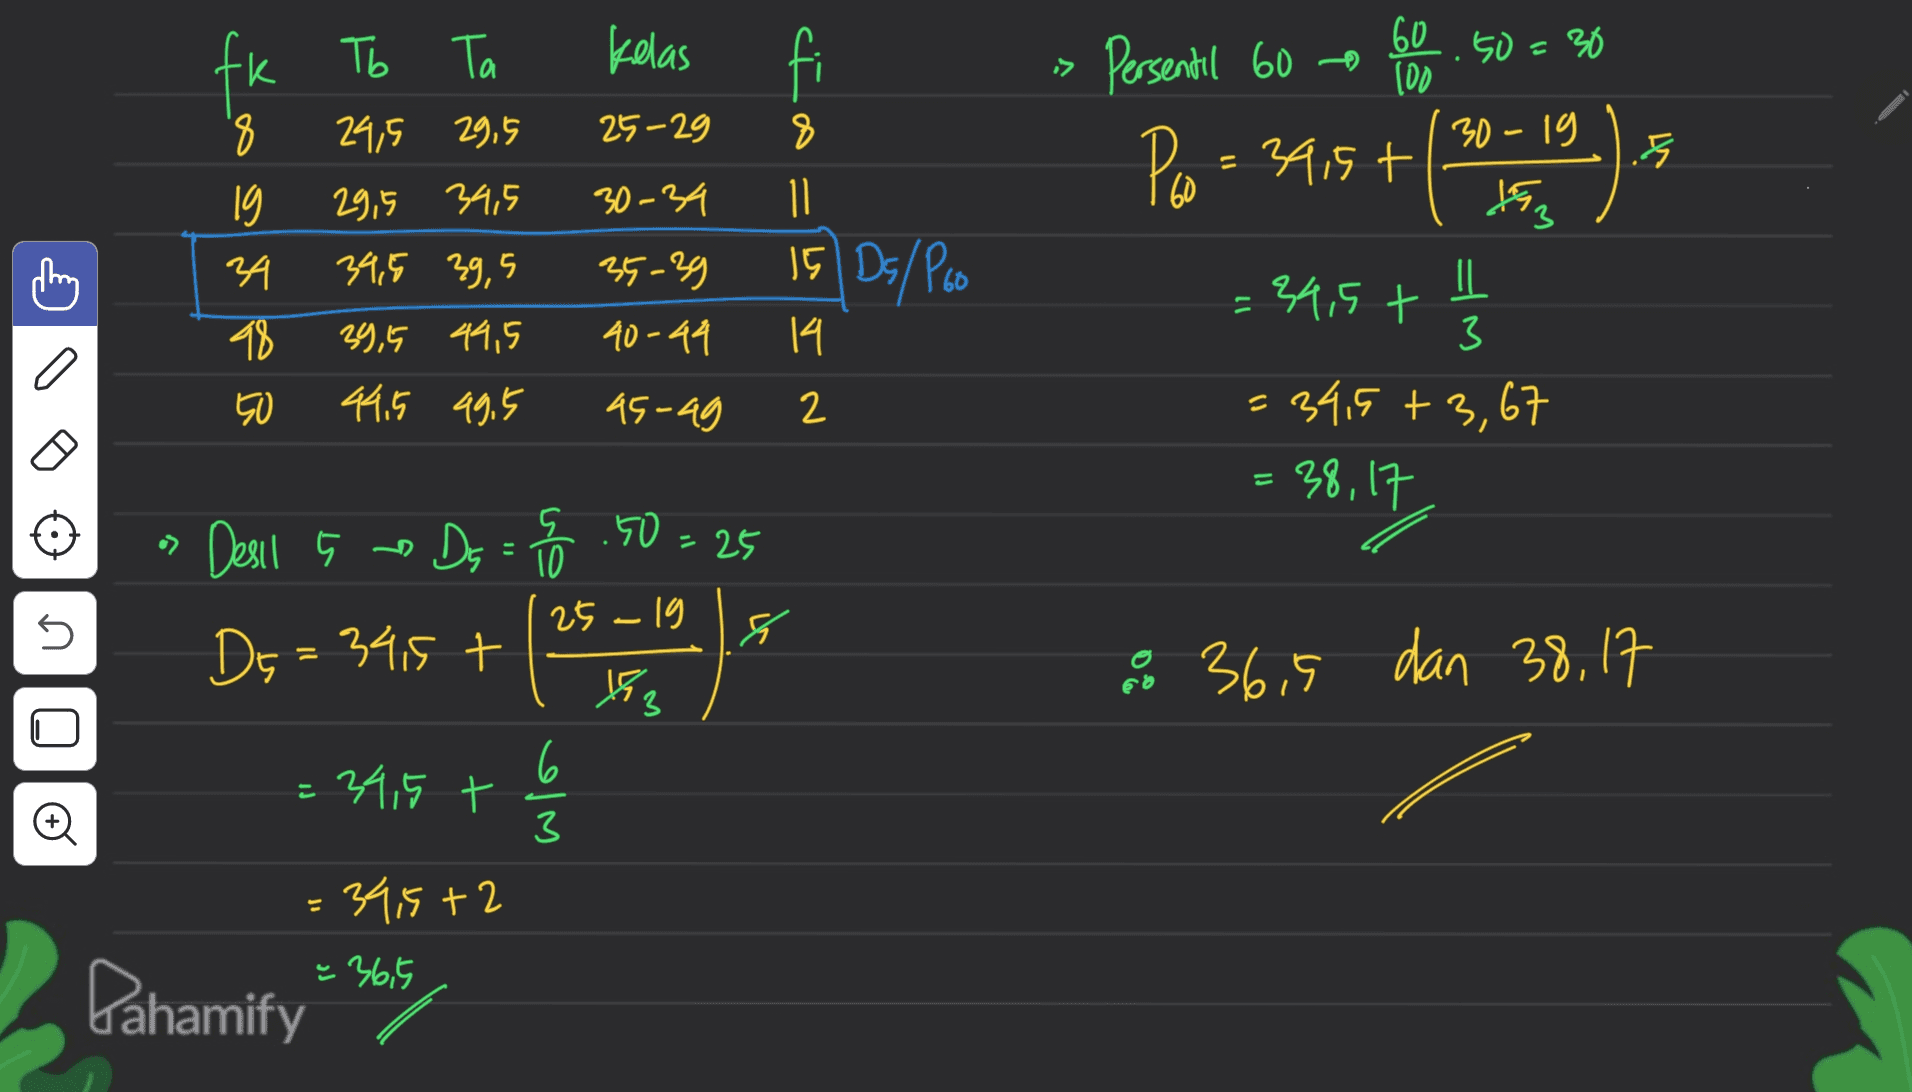 fk Tb Ta kelas fi
8 24,5 29,5 25-29 8
19 29,5 34,5 30-34 11
34 34,5 39,5 35-39 15 D5/P60
48 39,5 44,5 40-44 14
50 44,5 49,5 45-49 2
Desil 5 → D5 = 5/10 . 50 = 25
D5 = 34,5 + (25 - 19 / 15 3) . 5
= 34,5 + 6/3
= 34,5 + 2
= 36,5
Persentil 60 → 60/100 . 50 = 30
P60 = 34,5 + (30 - 19 / 15 3) . 5
= 34,5 + 11/3
= 34,5 + 3,67
= 38,17
∴ 36,5 dan 38,17
Pahamify